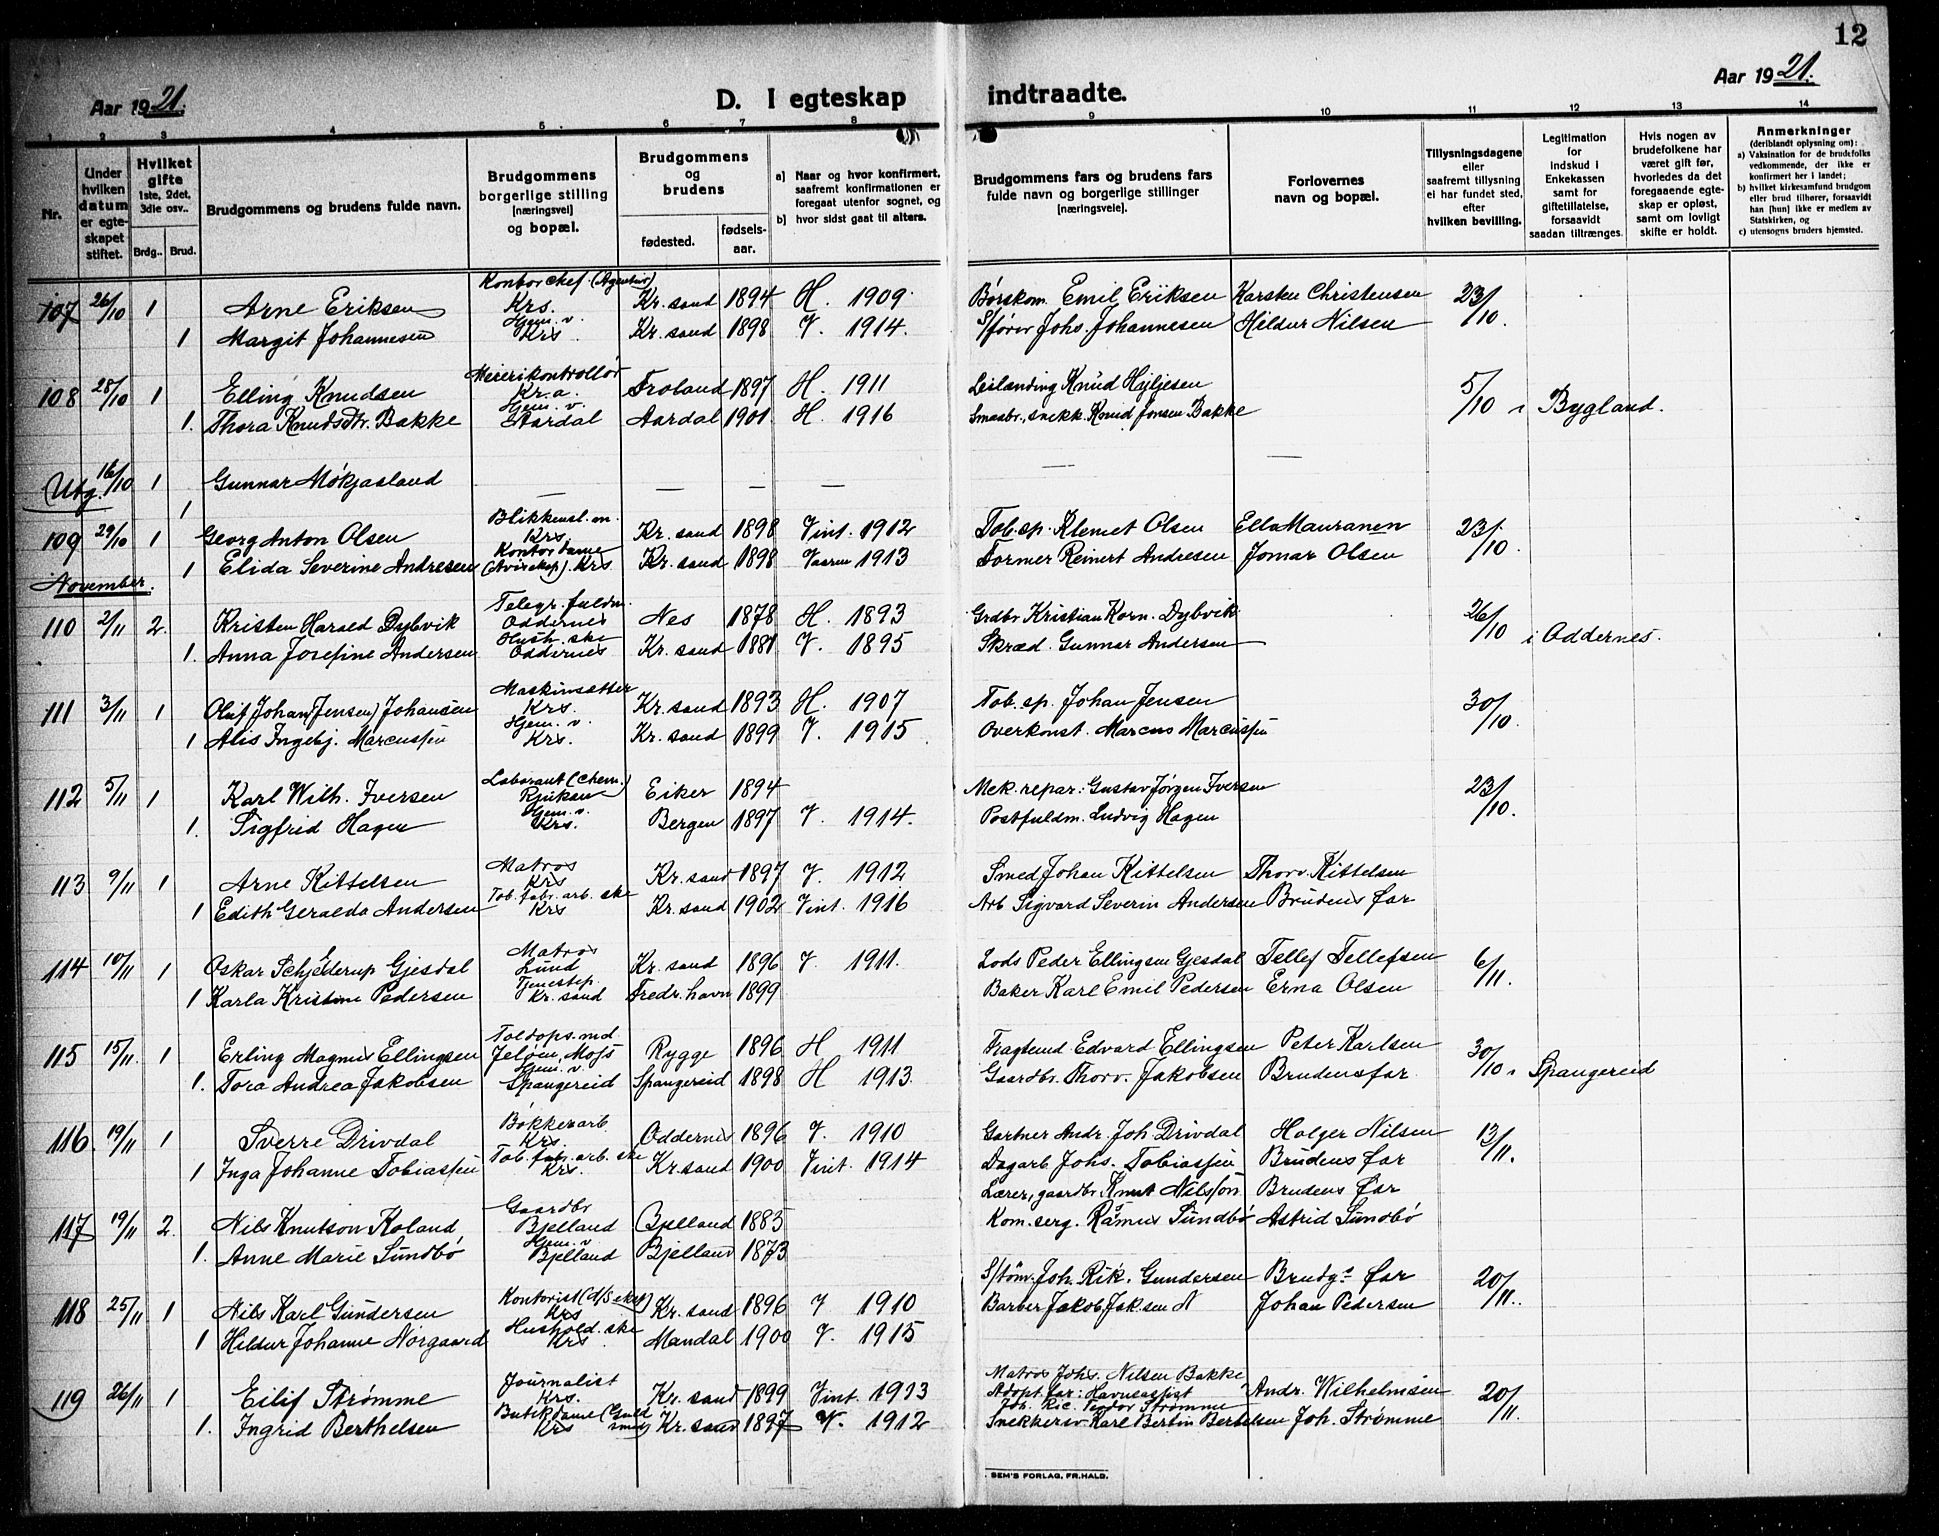 12
Aar 1921. D. I egteskap indtraadte. Aar 1921.
1 2 3 4 5 6 7 8 9 10 11 12 13 14
Nr.
Under hvilken datum er egteskapet stiftet.
Hvilket gifte 1ste, 2det, 3die osv..
Brdg.. Brud.
Brudgommens og brudens fulde navn.
Brudgommens borgerlige stilling [næringsvei] og bopæl.
Brudgommens og brudens
fødested. fødselsaar.
a) Naar og hvor konfirmert, saafremt konfirmationen er foregaat utenfor sognet, og
b) hvor sidst gaat til alters.
Brudgommens fars og brudens fars fulde navn og borgerlige stillinger [næringsveie].
Forlovernes navn og bopæl.
Tillysningsdagene eller saafremt tillysning ei har fundet sted, efter hvilken bevilling.
Legitimation for indskud i Enkekassen samt for giftetillatelse, forsaavidt saadan tiltrænges.
Hvis nogen av brudefolkene har været gift før, hvorledes da det foregaaende egteskap er opløst, samt om lovligt skifte er holdt.
Anmerkninger (deriblandt oplysning om):
a) Vaksination for de brudefolks vedkommende, der ikke er konfirmert her i landet;
b) hvilket kirkesamfund brudgom eller brud tilhører, forsaavidt han [hun] ikke er medlem av Statskirken, og
c) utensogns bruders hjemsted.
107 26/10 1 Arne Eriksen Kontorchef (Agentur) Krs. Kr.sand 1894 H. 1909. Børskom. Emil Eriksen Karsten Christensen 23/10.
1 Margit Johannesen Hjem. v. Krs. Kr.sand 1898 V. 1914. S/fører Johs. Johannesen Hildur Nilsen
108 28/10 1 Elling Knudsen Meierikontrollør Kr.a. Froland 1897 H. 1911 Leilænding Knud Hyljesen 5/10 i Bygland.
1. Thora Knudsdtr. Bakke Hjem. v. Aardal Aardal 1901. H. 1916 Smaabr., snekk. Knud Jonsen Bakke
Utg. 16/10 1 Gunnar Mókjasland — — — — — —
1
109 29/10 1 Georg Anton Olsen Blikkensl. m. Krs. Kr.sand 1898 Vint. 1912 Tob.sp. Klemet Olsen Ella Mauranen 23/10.
1 Elida Severine Andresen Kontordame (Aviseksp). Krs Kr.sand 1898 Vaaren 1913 Former Reinert Andresen Jomar Olsen
November.
110 2/11 2. Kristen Harald Dybvik Telegr. fuldm. Oddernes Nes 1878 H. 1893 Grdbr Kristian Korn. Dybvik 26/10 i Oddernes.
1. Anna Josefine Andersen Hush.ske Oddernes Kr.sand 1881 V. 1895 Skræd. Gunnar Andersen
111 3/11 1 Oluf Johan (Jensen) Johansen Maskinsætter Krs. Kr.sand 1893 H. 1907 Tob.sp. Johan Jensen 30/10.
1 Alis Ingebj. Marcussen Hjem. v. Krs. Kr.sand 1899 V. 1915 Overkonst. Marcus Marcussen
112 5/11 1 Karl Wilh. Iversen Laborant (chem.) Rjukan Eiker 1894 Mek. repar. Gustav Jørgen Iversen 23/10.
1. Sigfrid Hagen Hjem. v. Krs. Bergen 1897 V. 1914. Postfuldm. Ludvig Hagen
113 9/11 1 Arne Kittelsen Matros Krs Kr.sand 1897 V. 1912 Smed Johan Kittelsen Thorv. Kittelsen
1 Edith Geralda Andersen Tob.fabr.arb.ske Krs Kr.sand 1902 Vint. 1916 Arb Sigvard Severin Andersen Brudens far
114 10/11 1 Oskar Schjelderup Gjesdal Matros Lund Kr.sand 1896 V. 1911. Lods Peder Ellingsen Gjesdal Tellef Tellefsen 6/11.
1 Karla Kristine Pedersen Tjenestep. Kr.sand Fredr.havn 1899 Baker Karl Emil Pedersen Erna Olsen
115 15/11. 1 Erling Magnus Ellingsen Toldops.md. Jeløen, Moss Rygge 1896 H 1911 Fragtemd Edvard Ellingsen Peter Karlsen 30/10 i Spangereid
1. Tora Andrea Jakobsen Hjem. v. Spangereid Spangereid 1898 H 1913. Gaardbr. Thorv. Jakobsen Brudens far
116. 19/11 1 Sverre Drivdal Bøkkerarb. Krs. Oddernes 1896 V. 1910 Gartner Andr. Joh. Drivdal Holger Nilsen 13/11.
1 Inga Johanne Tobiassen Tob.fabr.arb.ske Krs Kr.sand 1900 Vint. 1914 Dagarb. Johs. Tobiassen Brudens far
Lærer, gaardbr Knut Nilsson Brudens far
117 19/11 2. Nils Knutson Koland Gaardbr Bjelland Bjelland 1885 Kom.serg. Rasmus Sundbø Astrid Sundbø
1. Anne Marie Sundbø Hjem. v Bjelland Bjelland 1873
S/tøm. Joh. Rik. Gundersen Brudgs far 20/11..
118 25/11 1 Nils Karl Gundersen Kontorist (d/s eksp) Krs Kr.sand 1896 V 1910 Barber Jakob Jak.sen N Johan Pedersen
1 Hildur Johanne Nørgaard Hushold.ske Krs Mandal 1900 V. 1915
119 26/11 1 Eilif Strømme Journalist Krs. Kr.sand 1899 Vint. 1913 Matros Johs. Nilsen Bakke Andr. Wilhelmsen 20/11.
Adopt.far: Havneassist Joh. Ric. Teodor Strømme
1. Ingrid Berthelsen Butikdame (Guldsmed) Krs Kr.sand 1897 V. 1912 Snekkersv Karl Bertin Bertelsen Joh. Strømme
SEM'S FORLAG, FR.HALD.